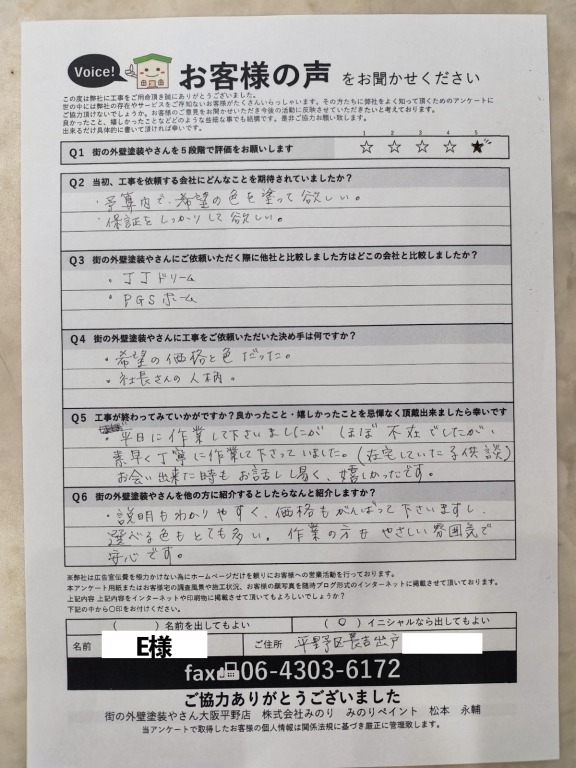 Voice!
お客様の声 をお聞かせください
この度は弊社に工事をご用命頂き誠にありがとうございました。
世の中には弊社の存在やサービスをご存知ないお客様がたくさんいらっしゃいます。その方たちに弊社をよく知って頂くためのアンケートに
ご協力頂けないでしょうか。お客様のご意見をお聞かせいただき今後の活動に反映させていただきたいと考えております。
良かったこと、嬉しかったことなどどのような些細な事でも結構です。是非ご協力お願い致します。
出来るだけ具体的に書いて頂ければ幸いです。
1 2 3 4 5
Q1 街の外壁塗装やさんを5段階で評価をお願いします ☆ ☆ ☆ ☆ ★
Q2 当初、工事を依頼する会社にどんなことを期待されていましたか?
・予算内で、希望の色を塗って欲しい。
・保証をしっかりして欲しい。
Q3 街の外壁塗装やさんにご依頼いただく際に他社と比較しました方はどこの会社と比較しましたか?
・JJドリーム
・PGSホーム
Q4 街の外壁塗装やさんに工事をご依頼いただいた決め手は何ですか?
・希望の価格と色だった。
・社長さんの人柄。
Q5 工事が終わってみていかがですか?良かったこと・嬉しかったことを忌憚なく頂戴出来ましたら幸いです
・平日に作業して下さいましたが ほぼ不在でしたがい
素早く丁寧に作業して下さっていました。(在宅していた子供談)
お会い出来た時もお話しし易く、嬉しかったです。
Q6 街の外壁塗装やさんを他の方に紹介するとしたらなんと紹介しますか?
・説明もわかりやすく、価格もがんばって下さいますし、
選べる色もとても多い。作業の方もやさしい雰囲気で
安心です。
※弊社は広告宣伝費を極力かけない為にホームページだけを頼りにお客様への営業活動を行っております。
本アンケート用紙またはお客様宅の調査風景や施工状況、お客様の顔写真を随時ブログ形式のインターネットに掲載させて頂いております。
上記内容 上記内容をインターネットや印刷物に掲載させて頂いてもよろしいでしょうか?
下記の中から〇印をお付けください。
( )名前を出してもよい ( ○ )イニシャルなら出してもよい
名前 E様 ご住所 平野区長吉出戸
fax 06-4303-6172
ご協力ありがとうございました
街の外壁塗装やさん大阪平野店 株式会社みのり みのりペイント 松本 永輔
当アンケートで取得したお客様の個人情報は関係法規に基づき厳正に管理致します。